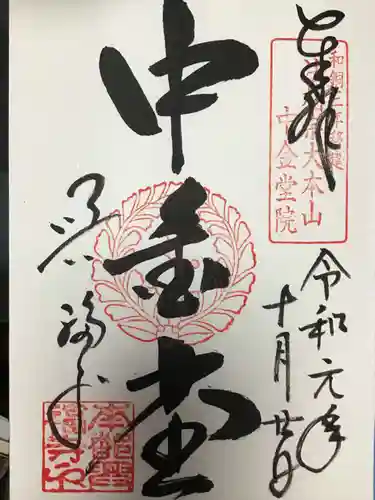 奉拝
和銅三年創建
法相宗大本山
中金堂院
令和元年
十月廿日
中金堂
興福寺